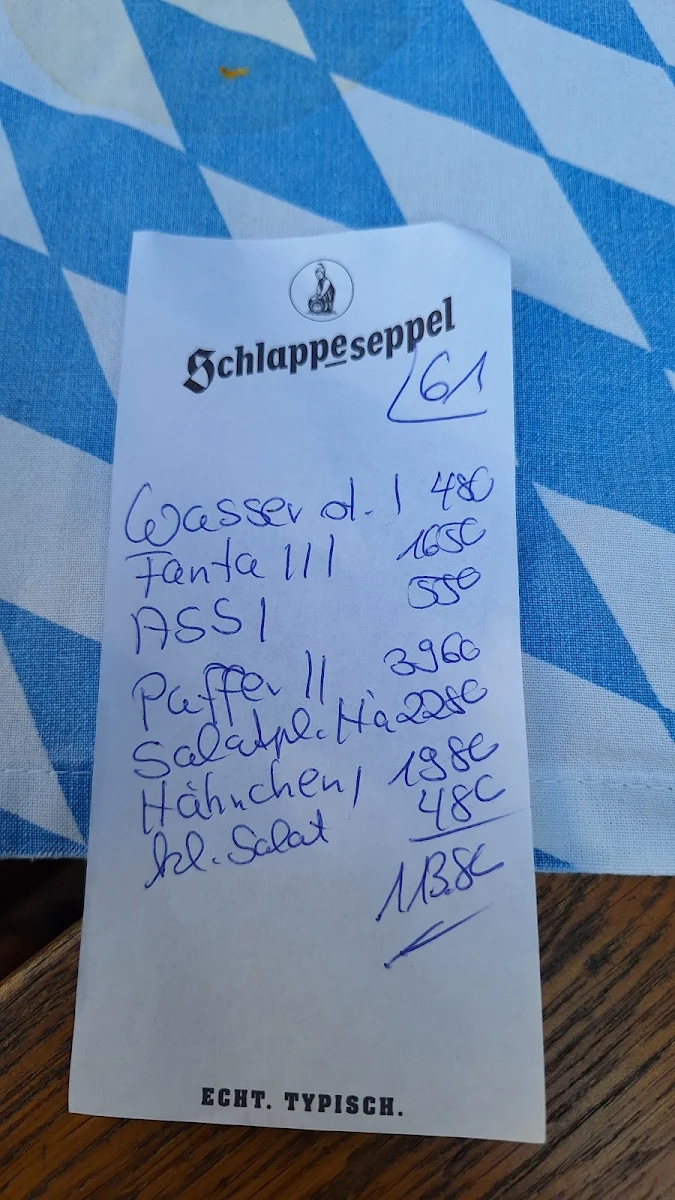 Schlappeseppel
61
Wasser d. I 480
Fanta III 1650
ASS I 550
Paffer II 3960
Salatpl. Hä 2280
Hähnchen I 1980
kl. Salat 480
113.80
ECHT. TYPISCH.